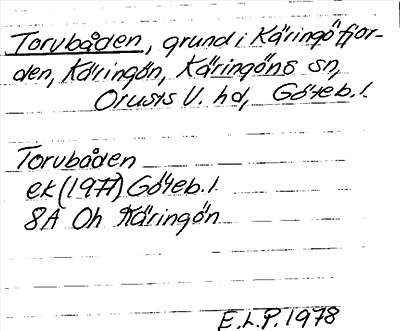 Torvbåden, grund i Käringöfjor-
den, Käringön, Käringöns sn,
Orusts V. hd, Göteb. l.
Torvbåden
ek (1977) Göteb. l.
8A Oh Käringön
E.L.P. 1978